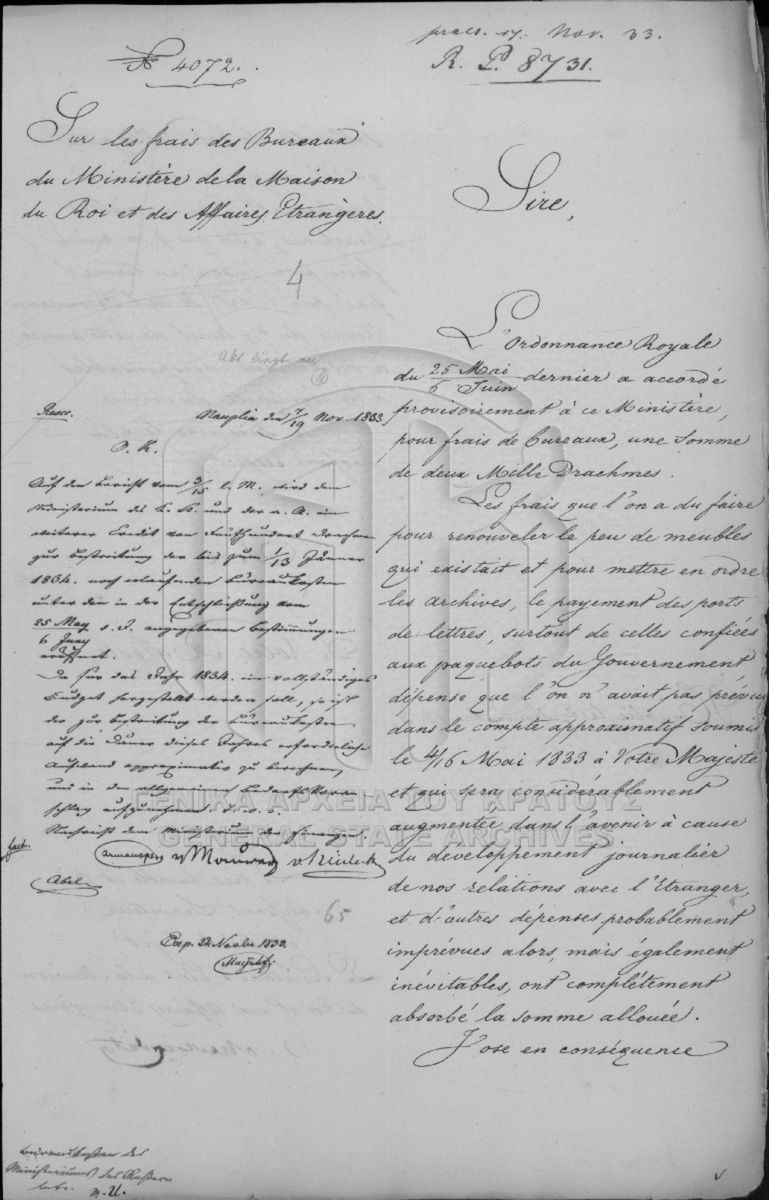 praes. 17. Nov. 33.
R. P. 8731.
№ 4072.
Sur les frais des Bureaux
du Ministère de la Maison
du Roi et des Affaires Etrangères.
4
Sire,
L'Ordonnance Royale
du 25 Mai / 6 Juin dernier a accordé
provisoirement à ce Ministère,
pour frais de Bureaux, une somme
de deux Mille Drachmes.
Les frais que l'on a du faire
pour renouveler le peu de meubles
qui existait et pour mettre en ordre
les archives, le payement des ports
de lettres, surtout de celles confiées
aux paquebots du Gouvernement,
dépense que l'on n'avait pas prévue
dans le compte approximatif soumis
le 4/16 Mai 1833 à Votre Majesté
et qui sera considérablement
augmentée dans l'avenir à cause
du développement journalier
de nos relations avec l'Etranger,
et d'autres dépenses probablement
imprévues alors, mais également
inévitables, ont complétement
absorbé la somme allouée.
J'ose en conséquence
Rescr.
Nauplia den 7/19 Nov. 1833
O. K.
Auf den Bericht vom 3/15 l. M. wird dem
Ministerium des k. H. und der a. A. ein
weiterer Credit von Fünfhundert Drachmen
zur Bestreitung der bis zum 1/13 Jänner
1834. noch erlaufenden Bureaukosten
unter den in der Entschließung vom
25 May / 6 Juny d. J. angegebenen Bestimmungen
eröffnet.
Da für das Jahr 1834. ein vollständiges
Budget hergestellt werden soll, so ist
der zur Bestreitung der Bureaukosten
auf die Dauer dieses Jahres erforderliche
Aufwand approximativ zu berechnen,
und in den allgemeinen Bedarfs Voran-
schlag aufzunehmen.
Nachricht dem Ministerium der Finanzen.
Armansperg v Maurer v Heideck
Abel
65
Exp. 24 Novbr 1833.
Bureaukosten des
Ministeriums des Äußern
betr.
ΓΕΝΙΚΑ ΑΡΧΕΙΑ ΤΟΥ ΚΡΑΤΟΥΣ
GENERAL STATE ARCHIVES